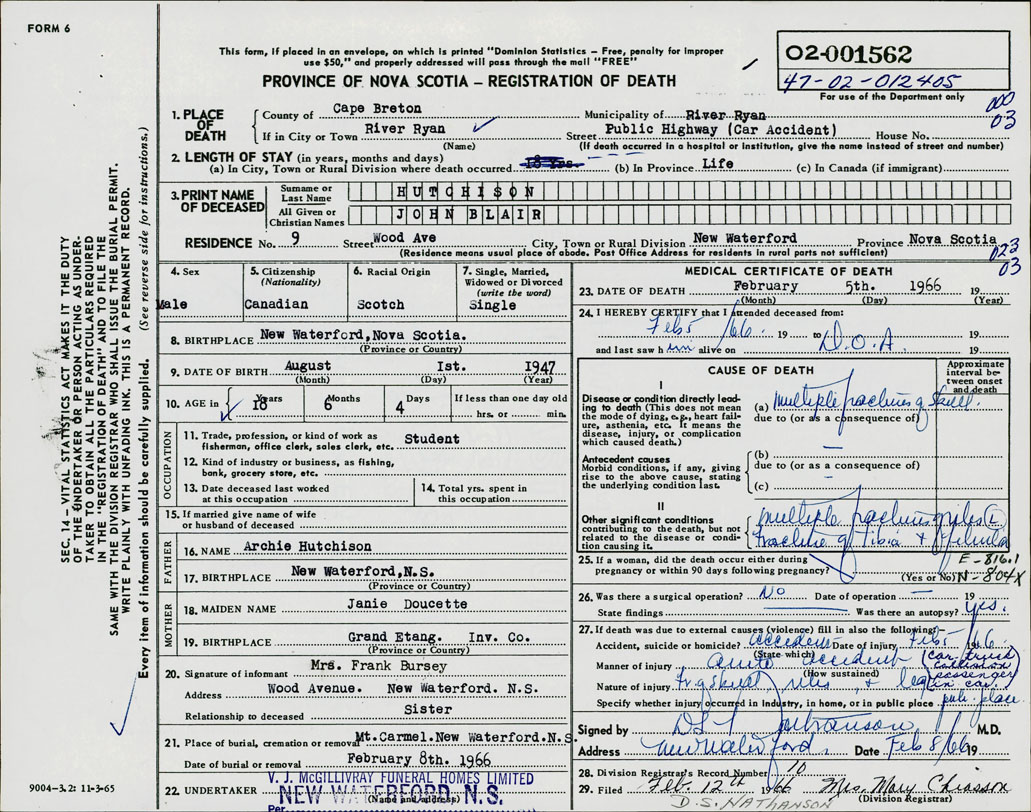 FORM 6
This form, if placed in an envelope, on which is printed "Dominion Statistics – Free, penalty for improper
use $50," and properly addressed will pass through the mail "FREE"
PROVINCE OF NOVA SCOTIA – REGISTRATION OF DEATH
02-001562
47-02-012405
For use of the Department only
000
03
1. PLACE OF DEATH
County of Cape Breton Municipality of River Ryan
If in City or Town River Ryan Street Public Highway (Car Accident) House No.
(Name) (If death occurred in a hospital or institution, give the name instead of street and number)
2. LENGTH OF STAY (in years, months and days)
(a) In City, Town or Rural Division where death occurred (b) In Province Life (c) In Canada (if immigrant)
3. PRINT NAME OF DECEASED
Surname or Last Name HUTCHISON
All Given or Christian Names JOHN BLAIR
RESIDENCE No. 9 Street Wood Ave City, Town or Rural Division New Waterford Province Nova Scotia
(Residence means usual place of abode. Post Office Address for residents in rural parts not sufficient)
023
03
4. Sex
Male
5. Citizenship
(Nationality)
Canadian
6. Racial Origin
Scotch
7. Single, Married,
Widowed or Divorced
(write the word)
Single
8. BIRTHPLACE New Waterford,Nova Scotia.
(Province or Country)
9. DATE OF BIRTH August Ist. 1947
(Month) (Day) (Year)
10. AGE in Years Months Days If less than one day old
18 6 4 hrs. or min.
OCCUPATION
11. Trade, profession, or kind of work as
fisherman, office clerk, sales clerk, etc. Student
12. Kind of industry or business, as fishing,
bank, grocery store, etc.
13. Date deceased last worked
at this occupation
14. Total yrs. spent in
this occupation
15. If married give name of wife
or husband of deceased
FATHER
16. NAME Archie Hutchison
17. BIRTHPLACE New Waterford,N.S.
(Province or Country)
MOTHER
18. MAIDEN NAME Janie Doucette
19. BIRTHPLACE Grand Etang. Inv. Co.
(Province or Country)
20. Signature of informant Mrs. Frank Bursey
Address Wood Avenue. New Waterford. N.S.
Relationship to deceased Sister
21. Place of burial, cremation or removal Mt.Carmel.New Waterford.N.S.
Date of burial or removal February 8th. 1966
22. UNDERTAKER V. J. McGILLIVRAY FUNERAL HOMES LIMITED
NEW WATERFORD, N.S.
(Name and address)
Per
MEDICAL CERTIFICATE OF DEATH
23. DATE OF DEATH February 5th. 1966 19
(Month) (Day) (Year)
24. I HEREBY CERTIFY that I attended deceased from:
Feb 5 /66. 19 to D.O.A. 19
and last saw him alive on 19
CAUSE OF DEATH
Approximate
interval be-
tween onset
and death
I
Disease or condition directly lead-
ing to death (This does not mean
the mode of dying, e.g., heart fail-
ure, asthenia, etc. It means the
disease, injury, or complication
which caused death.)
(a) multiple fractures of skull.
due to (or as a consequence of)
Antecedent causes
Morbid conditions, if any, giving
rise to the above cause, stating
the underlying condition last.
(b)
due to (or as a consequence of)
(c)
II
Other significant conditions
contributing to the death, but not
related to the disease or condi-
tion causing it.
multiple fractures ribs (L)
fracture of tibia & fibula
25. If a woman, did the death occur either during
pregnancy or within 90 days following pregnancy?
(Yes or No)
E-816.1
N-804X
26. Was there a surgical operation? No Date of operation 19
State findings Was there an autopsy? yes.
27. If death was due to external causes (violence) fill in also the following:-
Accident, suicide or homicide? accident Date of injury Feb 5 1966.
(State which)
Manner of injury auto accident (car-truck collision passenger in car)
(How sustained)
Nature of injury fr. of skull, ribs, & leg
Specify whether injury occurred in industry, in home, or in public place pub. place.
Signed by M.D.
Address New Waterford. Date Feb 8/66 19
28. Division Registrar's Record Number 10
29. Filed Feb. 12th 1966 Mrs. Mary Chiasson
(Division Registrar)
D.S. NATHANSON
SEC. 14 – VITAL STATISTICS ACT MAKES IT THE DUTY
OF THE UNDERTAKER OR PERSON ACTING AS UNDER-
TAKER TO OBTAIN ALL THE PARTICULARS REQUIRED
IN THE "REGISTRATION OF DEATH" AND TO FILE THE
SAME WITH THE DIVISION REGISTRAR WHO SHALL ISSUE THE BURIAL PERMIT.
WRITE PLAINLY WITH UNFADING INK. THIS IS A PERMANENT RECORD.
Every item of information should be carefully supplied. (See reverse side for instructions.)
9004-3.2: 11-3-65